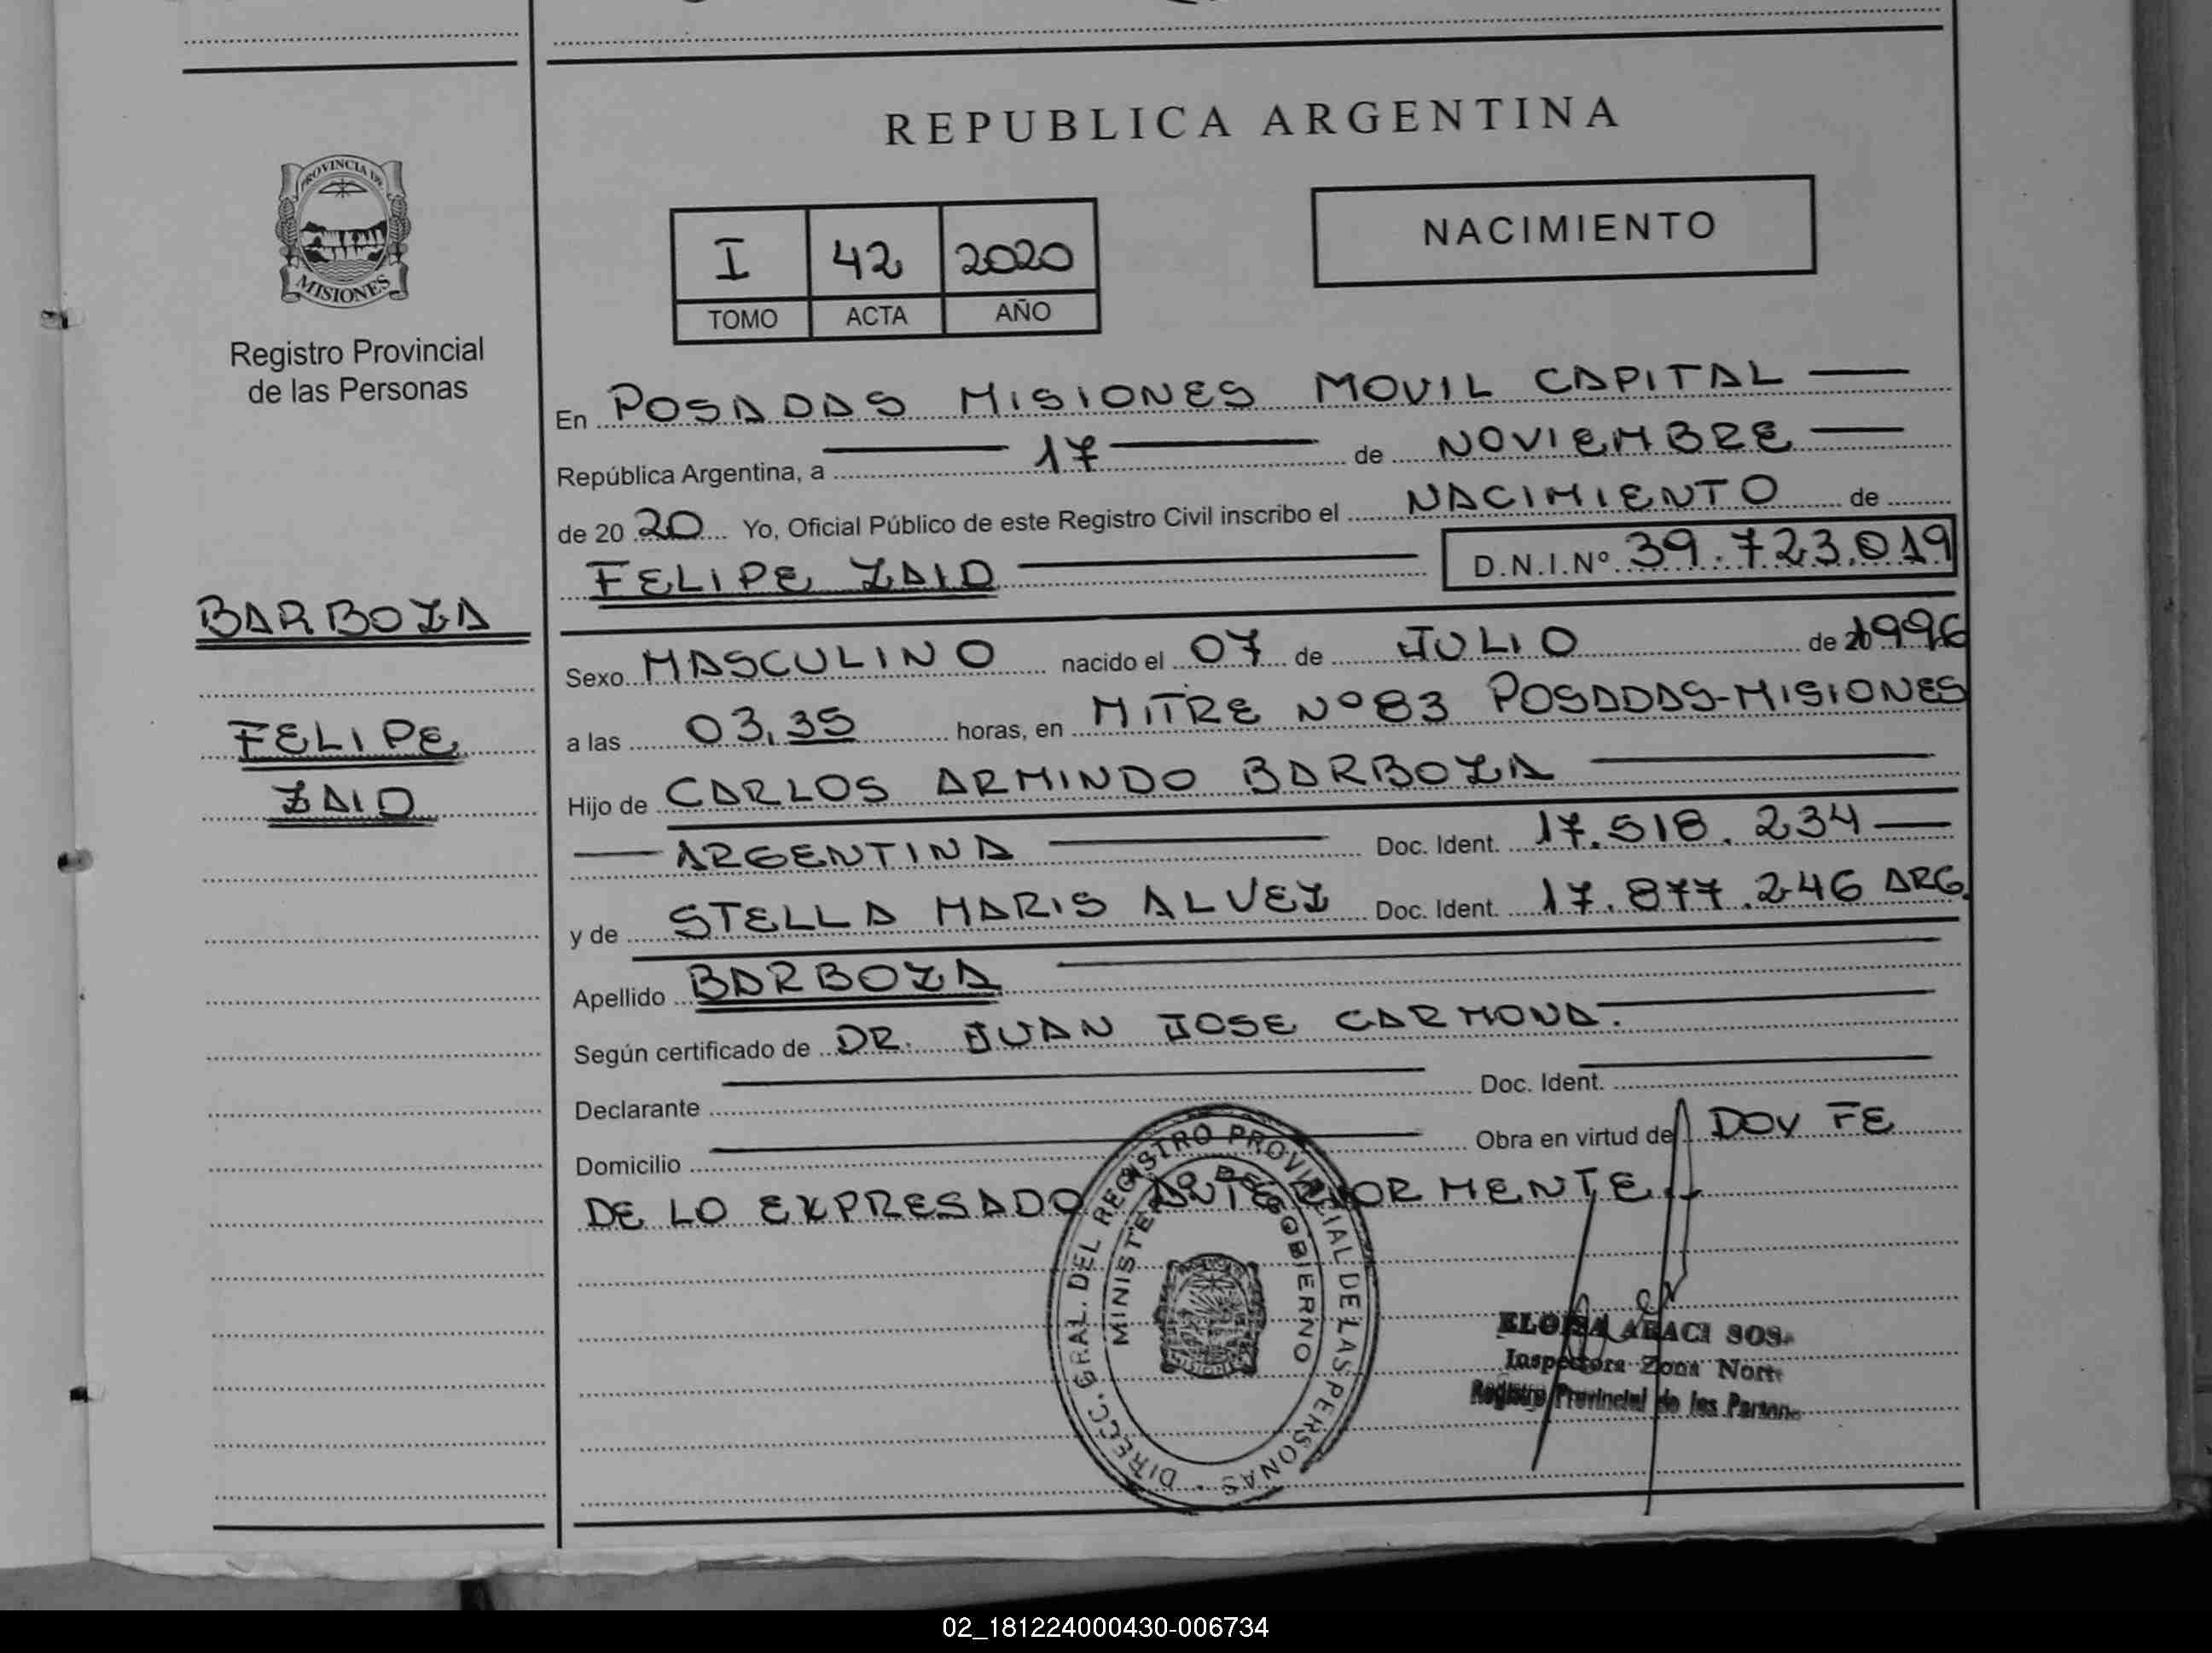 REPUBLICA ARGENTINA
PROVINCIA DE
MISIONES
Registro Provincial
de las Personas
NACIMIENTO
I 42 2020
TOMO ACTA AÑO
En POSADAS MISIONES MOVIL CAPITAL
República Argentina, a 17 de NOVIEMBRE
de 20 20 Yo, Oficial Público de este Registro Civil inscribo el NACIMIENTO de
FELIPE ZAID D.N.I.Nº 39.723.019
BARBOZA
FELIPE
ZAID
Sexo MASCULINO nacido el 07 de JULIO de 1996
a las 03,35 horas, en MITRE Nº 83 POSADAS-MISIONES
Hijo de CARLOS ARMINDO BARBOZA
ARGENTINA Doc. Ident. 17.518.234
y de STELLA MARIS ALVEZ Doc. Ident. 17.877.246 ARG.
Apellido BARBOZA
Según certificado de DR. JUAN JOSE CARMONA.
Declarante Doc. Ident.
Domicilio Obra en virtud de DOY FE
DE LO EXPRESADO ANTERIORMENTE.
DIRECC. GRAL. DEL REGISTRO PROVINCIAL DE LAS PERSONAS
MINISTERIO DE GOBIERNO
MISIONES
SOS
Inspectora Zona Norte
Registro Provincial de las Person
02_181224000430-006734